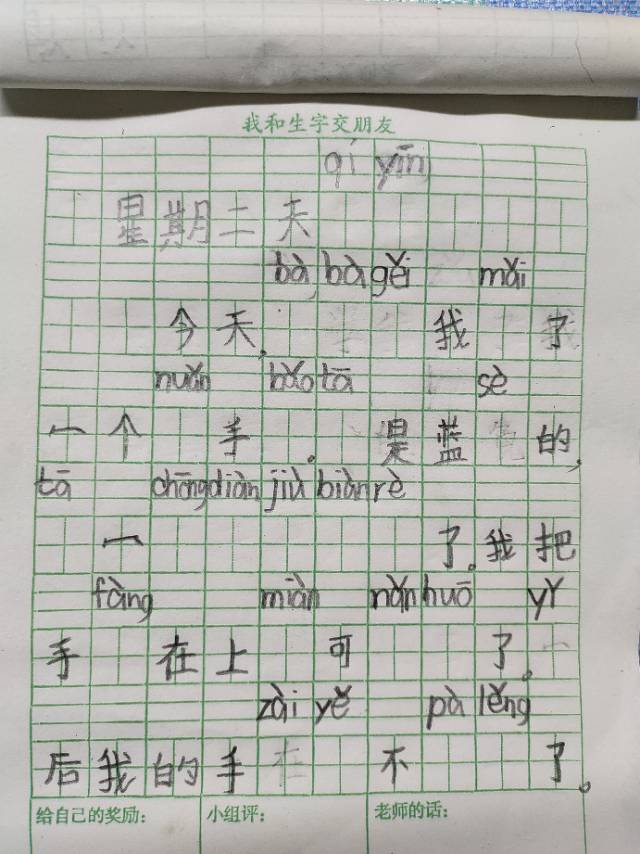 我和生字交朋友
qí yīn
星期二 天
bà bà gěi mǎi
今天, 我 了
nuǎn bǎo tā sè
一个 手 。 是蓝 的,
tā chōngdiàn jiù biàn rè
一 了。我把
fàng miàn nǎn huō yǐ
手 在上 可 了。
zài yě pà lěng
后我的手 不 了。
给自己的奖励: 小组评: 老师的话: